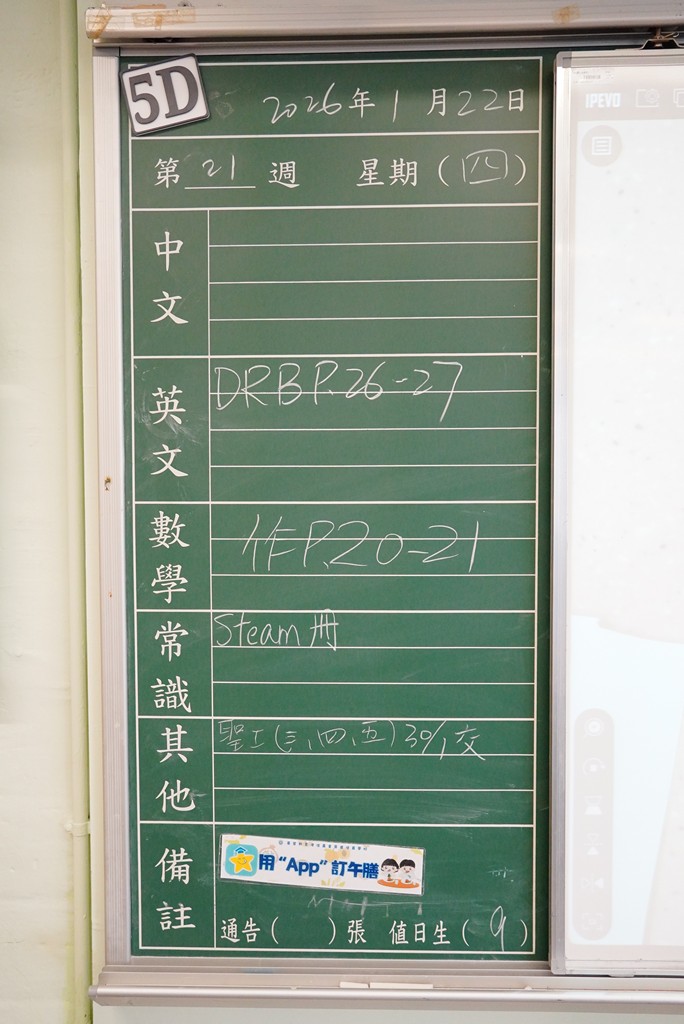 5D
2026年1月22日
第21週 星期(四)
中文
英文 DRB P.26-27
數學 作P.20-21
常識 Steam冊
其他 聖工(三、四、五)30/1交
備註
用“App”訂午膳
通告( )張 值日生(9)
IPEVO